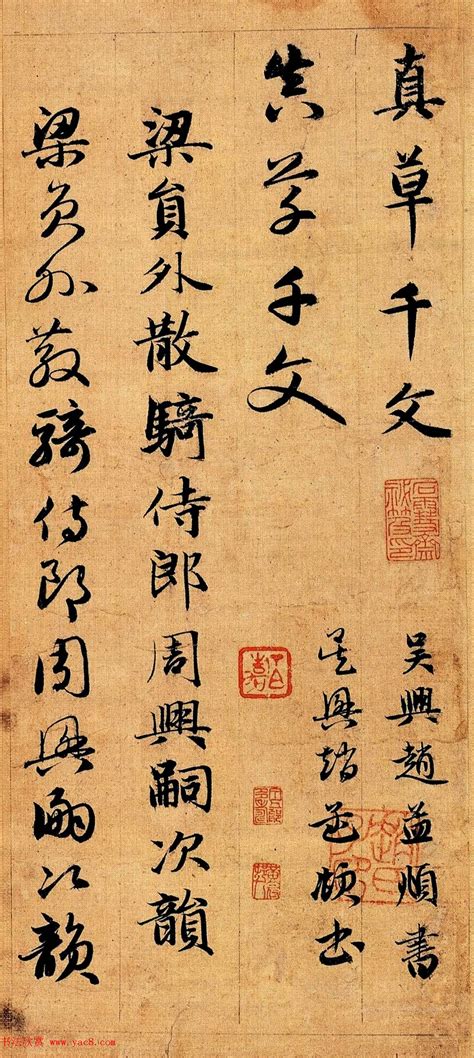 真草千文
吳興趙孟頫書
真草千文
吳興趙孟頫書
梁員外散騎侍郎周興嗣次韻
梁員外散騎侍郎周興嗣次韻
书法欣赏 www.yac8.com